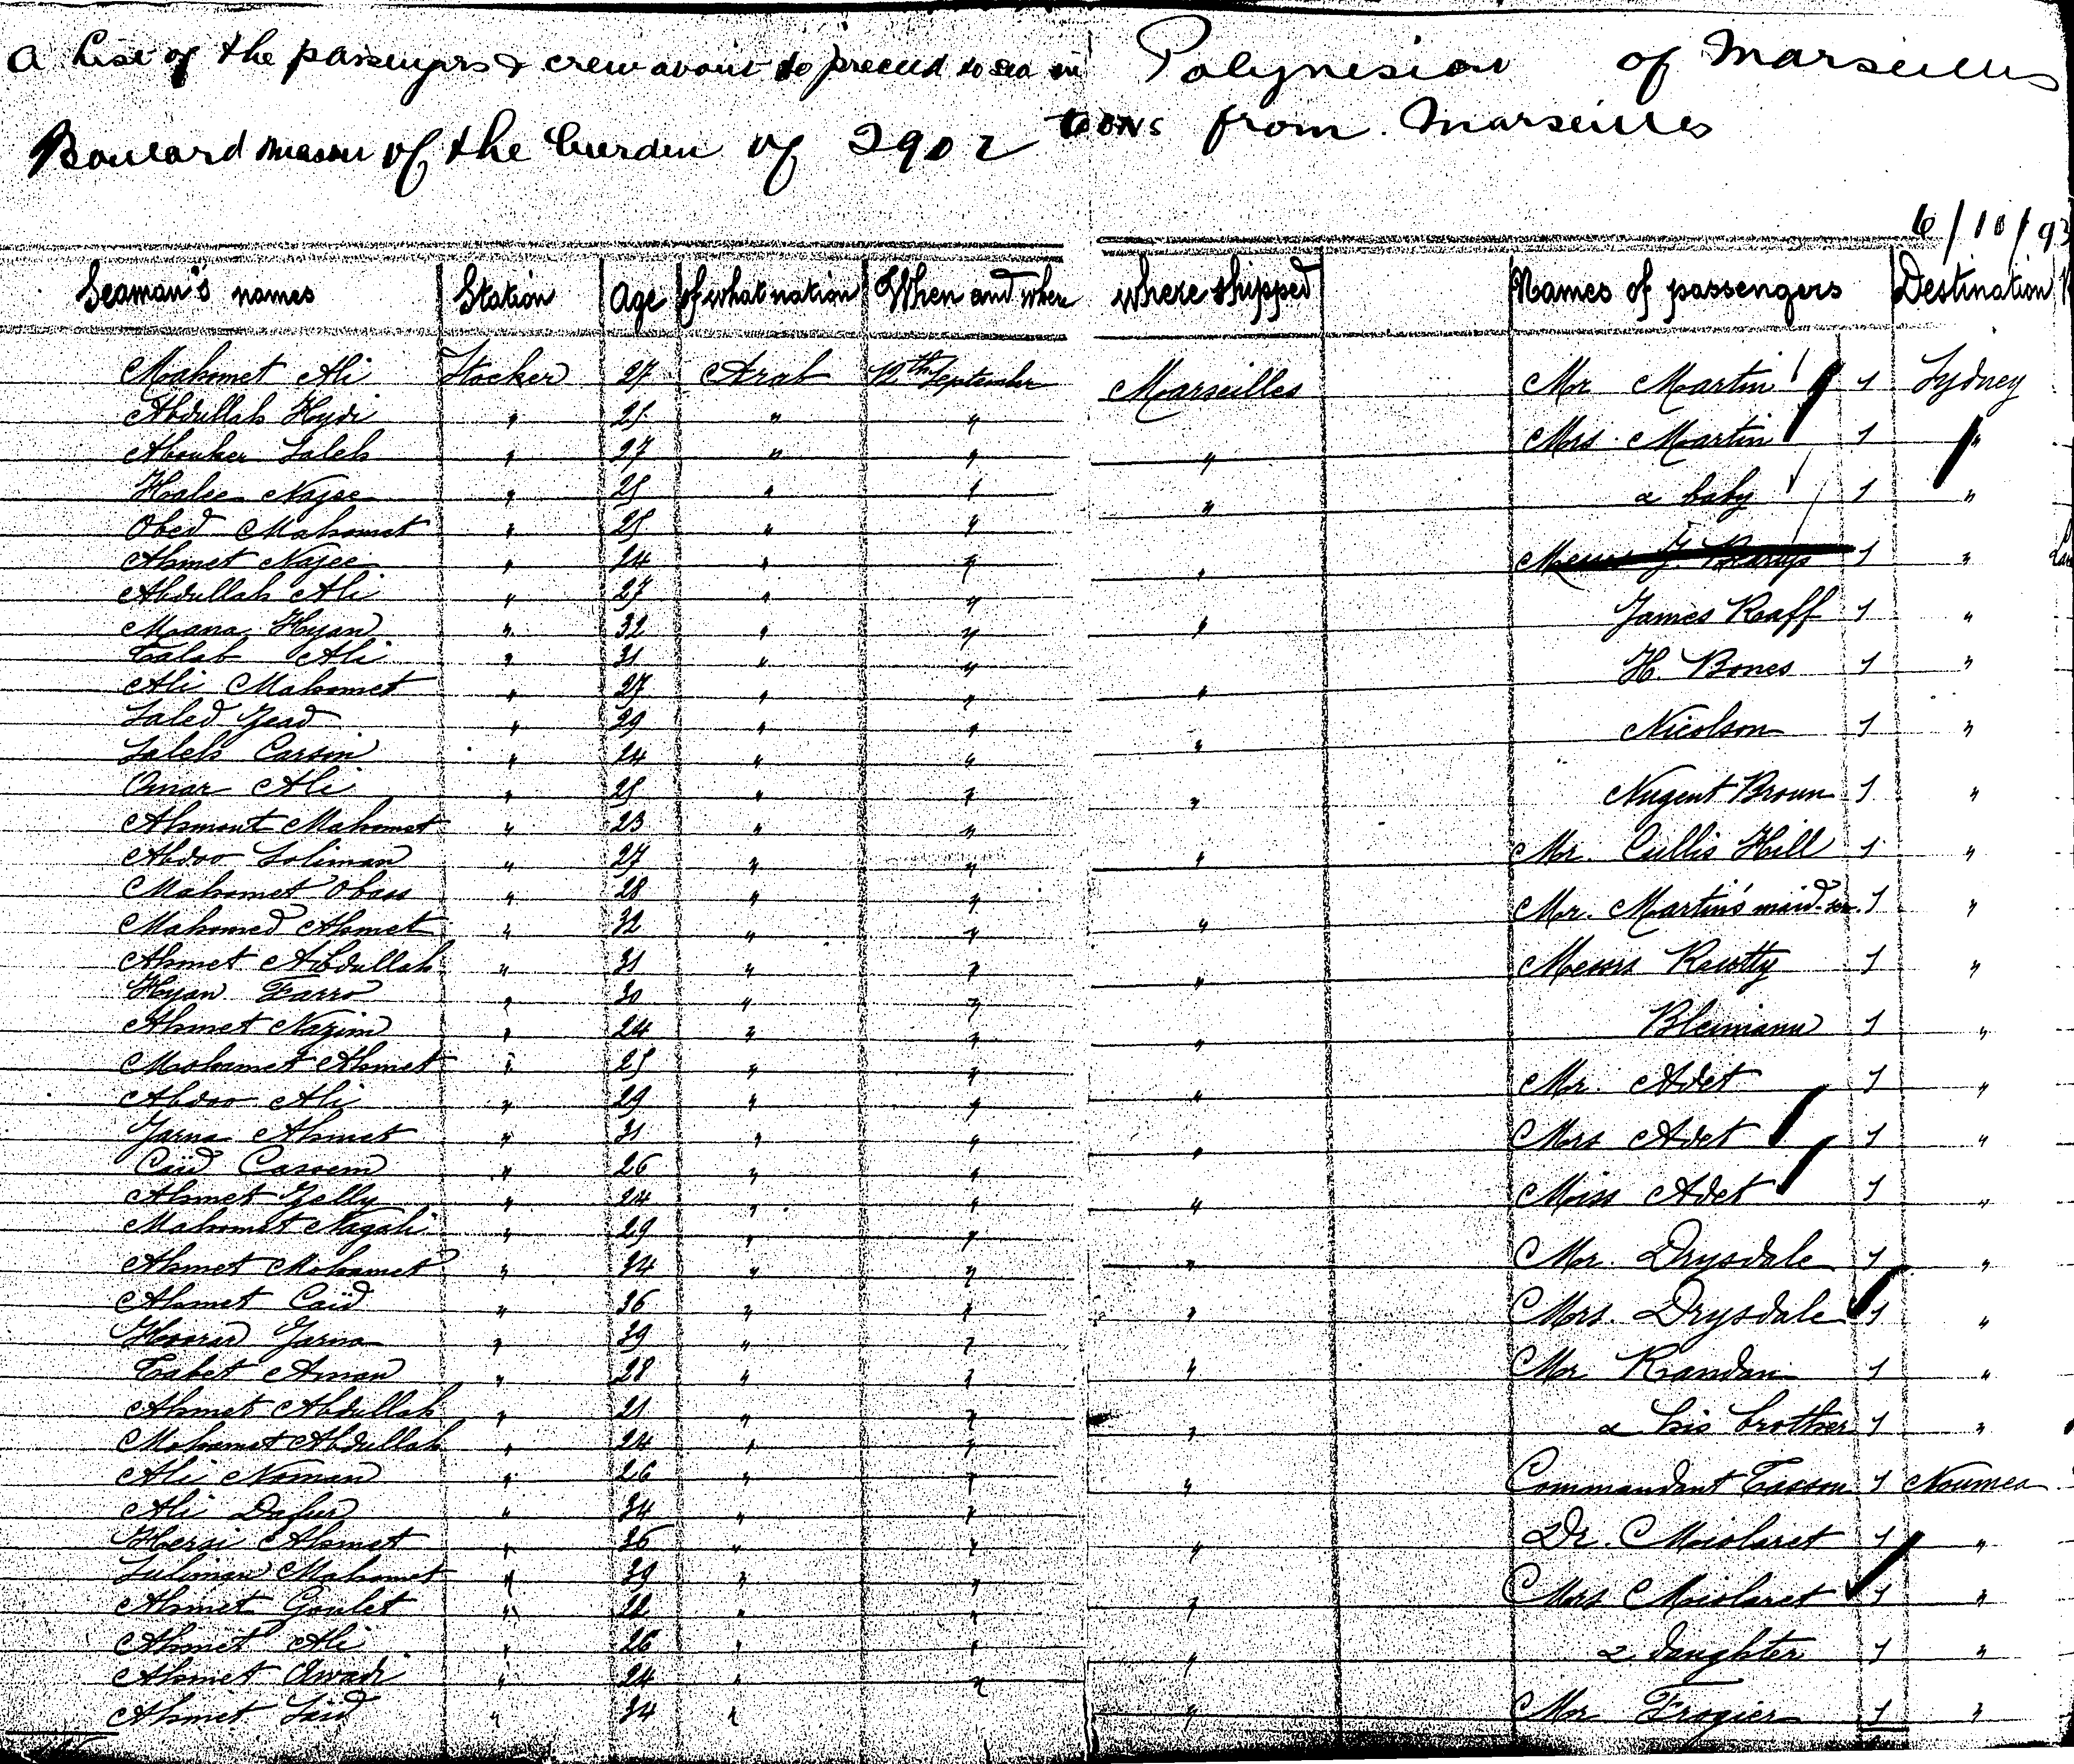 A List of the passengers & crew about to proceed to sea in Polynesien of Marseilles
Boulard master of the burden of 2902 tons from Marseilles
6/10/93
Seaman's names Station Age Of what nation When and where where shipped Names of passengers Destination
Mahomet Ali Stocker 27 Arab 12th September Marseilles Mr Martin 1 Sydney
Abdullah Hydi " 25 " "
Abouker Saleh " 27 " " " Mrs. Martin 1 "
Halee Najee " 25 " " " & baby 1 "
Obed Mahomet " 25 " "
Ahmet Najee " 24 " " " Messrs J. 1 "
Abdullah Ali " 27 " "
Mana Hyan " 32 " " " James Raaff 1 "
Talab Ali " 31 " "
Ali Mahomet " 27 " " " H. Bones 1 "
Saled Zead " 29 " "
Saleh Carsin " 24 " " " Nicolson 1 "
Omar Ali " 25 " " " Nugent Broun 1 "
Ahmout Mahomet " 23 " "
Abdoo Soliman " 27 " " " Mr. Cullis Hill 1 "
Mahomet Obass " 28 " "
Mahomed Ahmet " 32 " " " Mr. Martin's maid-ser. 1 "
Ahmet Abdullah " 31 " " " Messrs 1 "
Hyan Farro " 30 " "
Ahmet Nazim " 24 " " " Bleimann 1 "
Mohamet Ahmet " 25 " "
Abdoo Ali " 29 " " " Mr. Adet 1 "
Jarna Ahmet " 31 " " " Mrs Adet 1 "
Caïd Cassem " 26 " "
Ahmet Zelly " 24 " " " Miss Adet 1 "
Mahomet Nagahi " 29 " "
Ahmet Mohamet " 34 " " " Mr. Drysdale 1 "
Ahmet Caïd " 36 " " " Mrs. Drysdale 1 "
Jarna " 39 " "
Tabet Aman " 28 " " " Mr Randan 1 "
Ahmet Abdullah " 21 " " " & his brother 1 "
Mohamet Abdullah " 24 " "
Ali Noman " 26 " " " Commandant Tasson 1 Noumea
Ali Dafur " 34 " "
Hersi Ahmet " 36 " " " Dr. Miolaret 1 "
Suliman Mahomet " 39 " "
Ahmet Goulet " 22 " " " Mrs Miolaret 1 "
Ahmet Ali " 26 " " " & daughter 1 "
Ahmet Awadi " 24 " "
Ahmet Said " 34 " " Mr Frogier 1 "